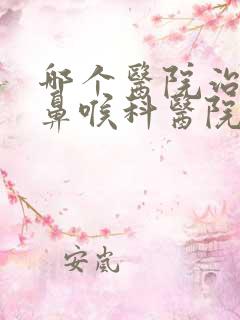 哪个醫院治
鼻喉科醫院
安嵐